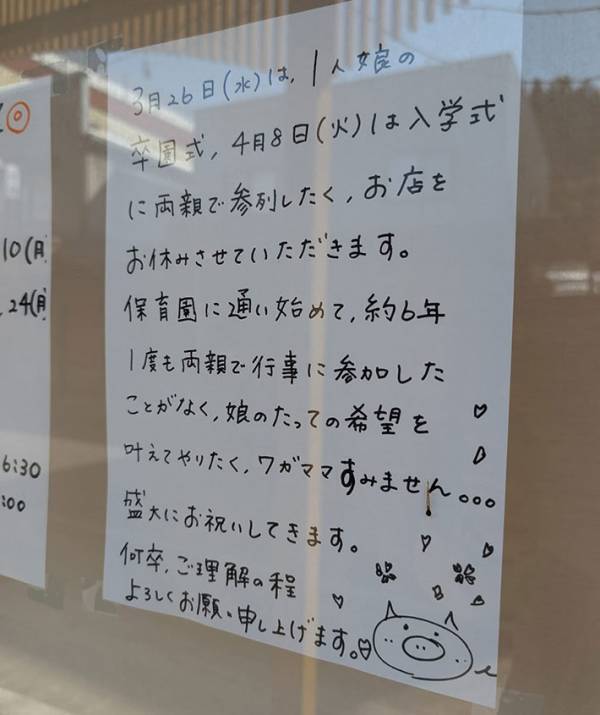 3月26日(水)は、1人娘の
卒園式、4月8日(火)は入学式
に両親で参列したく、お店を
お休みさせていただきます。
保育園に通い始めて、約6年
1度も両親で行事に参加した
ことがなく、娘のたっての希望を
叶えてやりたく、ワガママすみません。。。
盛大にお祝いしてきます。
何卒、ご理解の程
よろしくお願い申し上げます。
10(月
24(月)
6:30
:00